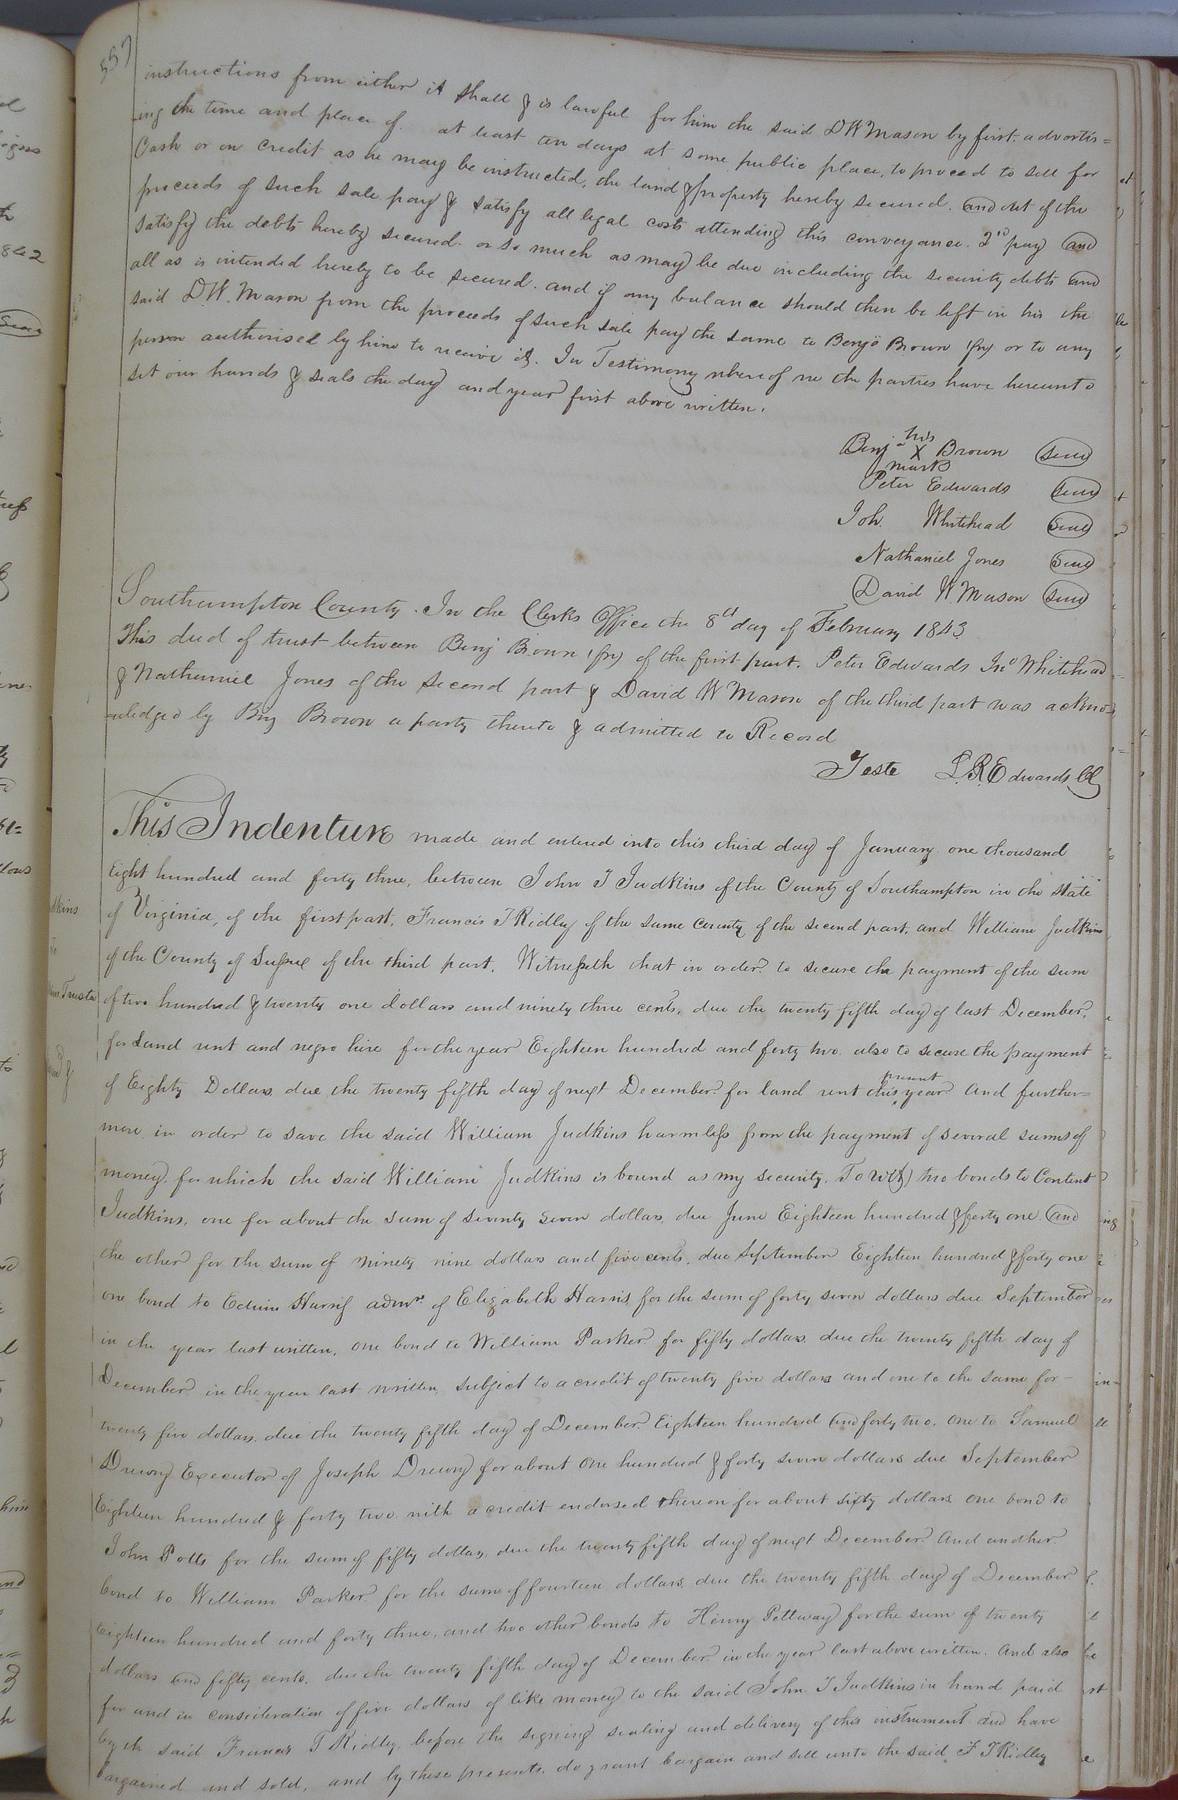 557
instructions from either it shall & is lawful for him the said D W Mason by first advertis=
ing the time and place of. at least ten days at some public place, to proceed to sell for
Cash or on credit as he may be instructed, the land & property hereby secured. and out of the
proceeds of such sale pay & satisfy all legal costs attending this conveyance. 2nd pay and
satisfy the debts hereby secured. or so much as may be due including the security debts and
all as is intended hereby to be secured. and if any balance should then be left in his the
said D.W. Mason from the proceeds of such sale pay the same to Benjn Brown (fn) or to any
person authorised by him to receive it. In Testimony whereof we the parties have hereunto
set our hands & seals the day and year first above written.
his
Benjn X Brown Seal
mark
Peter Edwards Seal
Joh. Whitehead Seal
Nathaniel Jones Seal
David W Mason Seal
Southampton County. In the Clerks Office the 8th day of February 1843
This deed of trust between Benj Brown (fn) of the first part. Peter Edwards Jno Whitehead
& Nathaniel Jones of the second part & David W Mason of the third part was acknow
ledged by Benj Brown a party thereto & admitted to Record
Teste L.R. Edwards CC
This Indenture made and entered into this third day of January one thousand
Eight hundred and forty three, between John T Judkins of the County of Southampton in the state
of Virginia, of the first part, Francis T Ridley of the same County of the second part, and William Judkins
of the County of Sussex of the third part, Witnesseth that in order to secure the payment of the sum
of two hundred & twenty one dollars and ninety three cents, due the twenty fifth day of last December,
for Land rent and negro hire for the year Eighteen hundred and forty two. also to secure the payment
of Eighty Dollars, due the twenty fifth day of next December for land rent this present year And further=
more in order to save the said William Judkins harmless from the payment of several sums of
money, for which the said William Judkins is bound as my security. To wit) two bonds to Content
Judkins, one for about the sum of seventy seven dollars, due June Eighteen hundred & forty one, and
the other for the sum of ninety nine dollars and five cents, due September Eighteen hundred & forty one
one bond to Edwin Harris admr. of Elizabeth Harris for the sum of forty seven dollars due September
in the year last written, one bond to William Parker for fifty dollars, due the twenty fifth day of
December in the year last written, subject to a credit of twenty five dollars and one to the same for
twenty five dollars, due the twenty fifth day of December Eighteen hundred and forty two, One to Samuel
Drewry Executor of Joseph Drewry for about One hundred & forty seven dollars due September
Eighteen hundred & forty two with a credit endorsed thereon for about sixty dollars one bond to
John Potts for the sum of fifty dollars, due the twenty fifth day of next December And another
bond to William Parker for the sum of fourteen dollars, due the twenty fifth day of December
Eighteen hundred and forty three, and two other bonds to Henry Pettway for the sum of twenty
dollars and fifty cents, due the twenty fifth day of December in the year last above written. And also
for and in consideration of five dollars of like money to the said John T Judkins in hand paid
by the said Francis T Ridley, before the signing sealing and delivery of this instrument and have
bargained and sold, and by these presents, do grant bargain and sell unto the said F T Ridley